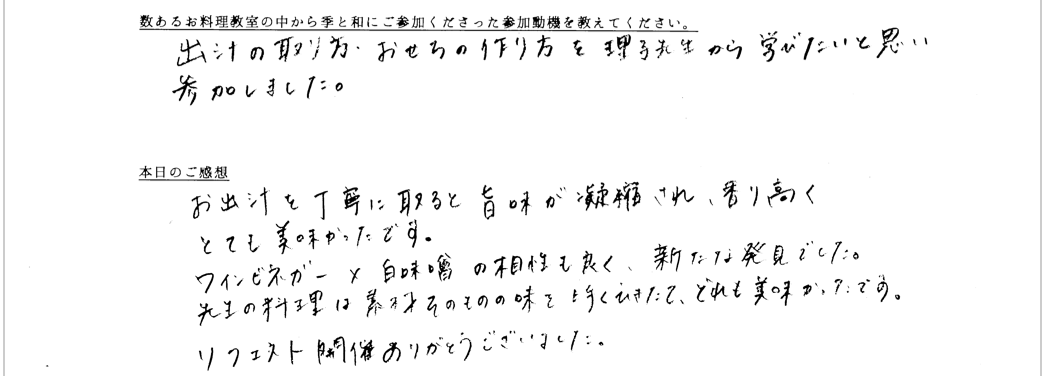 数あるお料理教室の中から季と和にご参加くださった参加動機を教えてください。
出汁の取り方・おせちの作り方を理子先生から学びたいと思い
参加しました。
本日のご感想
お出汁を丁寧に取ると旨味が凝縮され、香り高く
とても美味かったです。
ワインビネガー×白味噌の相性も良く、新たな発見でした。
先生の料理は素材そのものの味を上手くひきたて、どれも美味かったです。
リクエスト開催ありがとうございました。